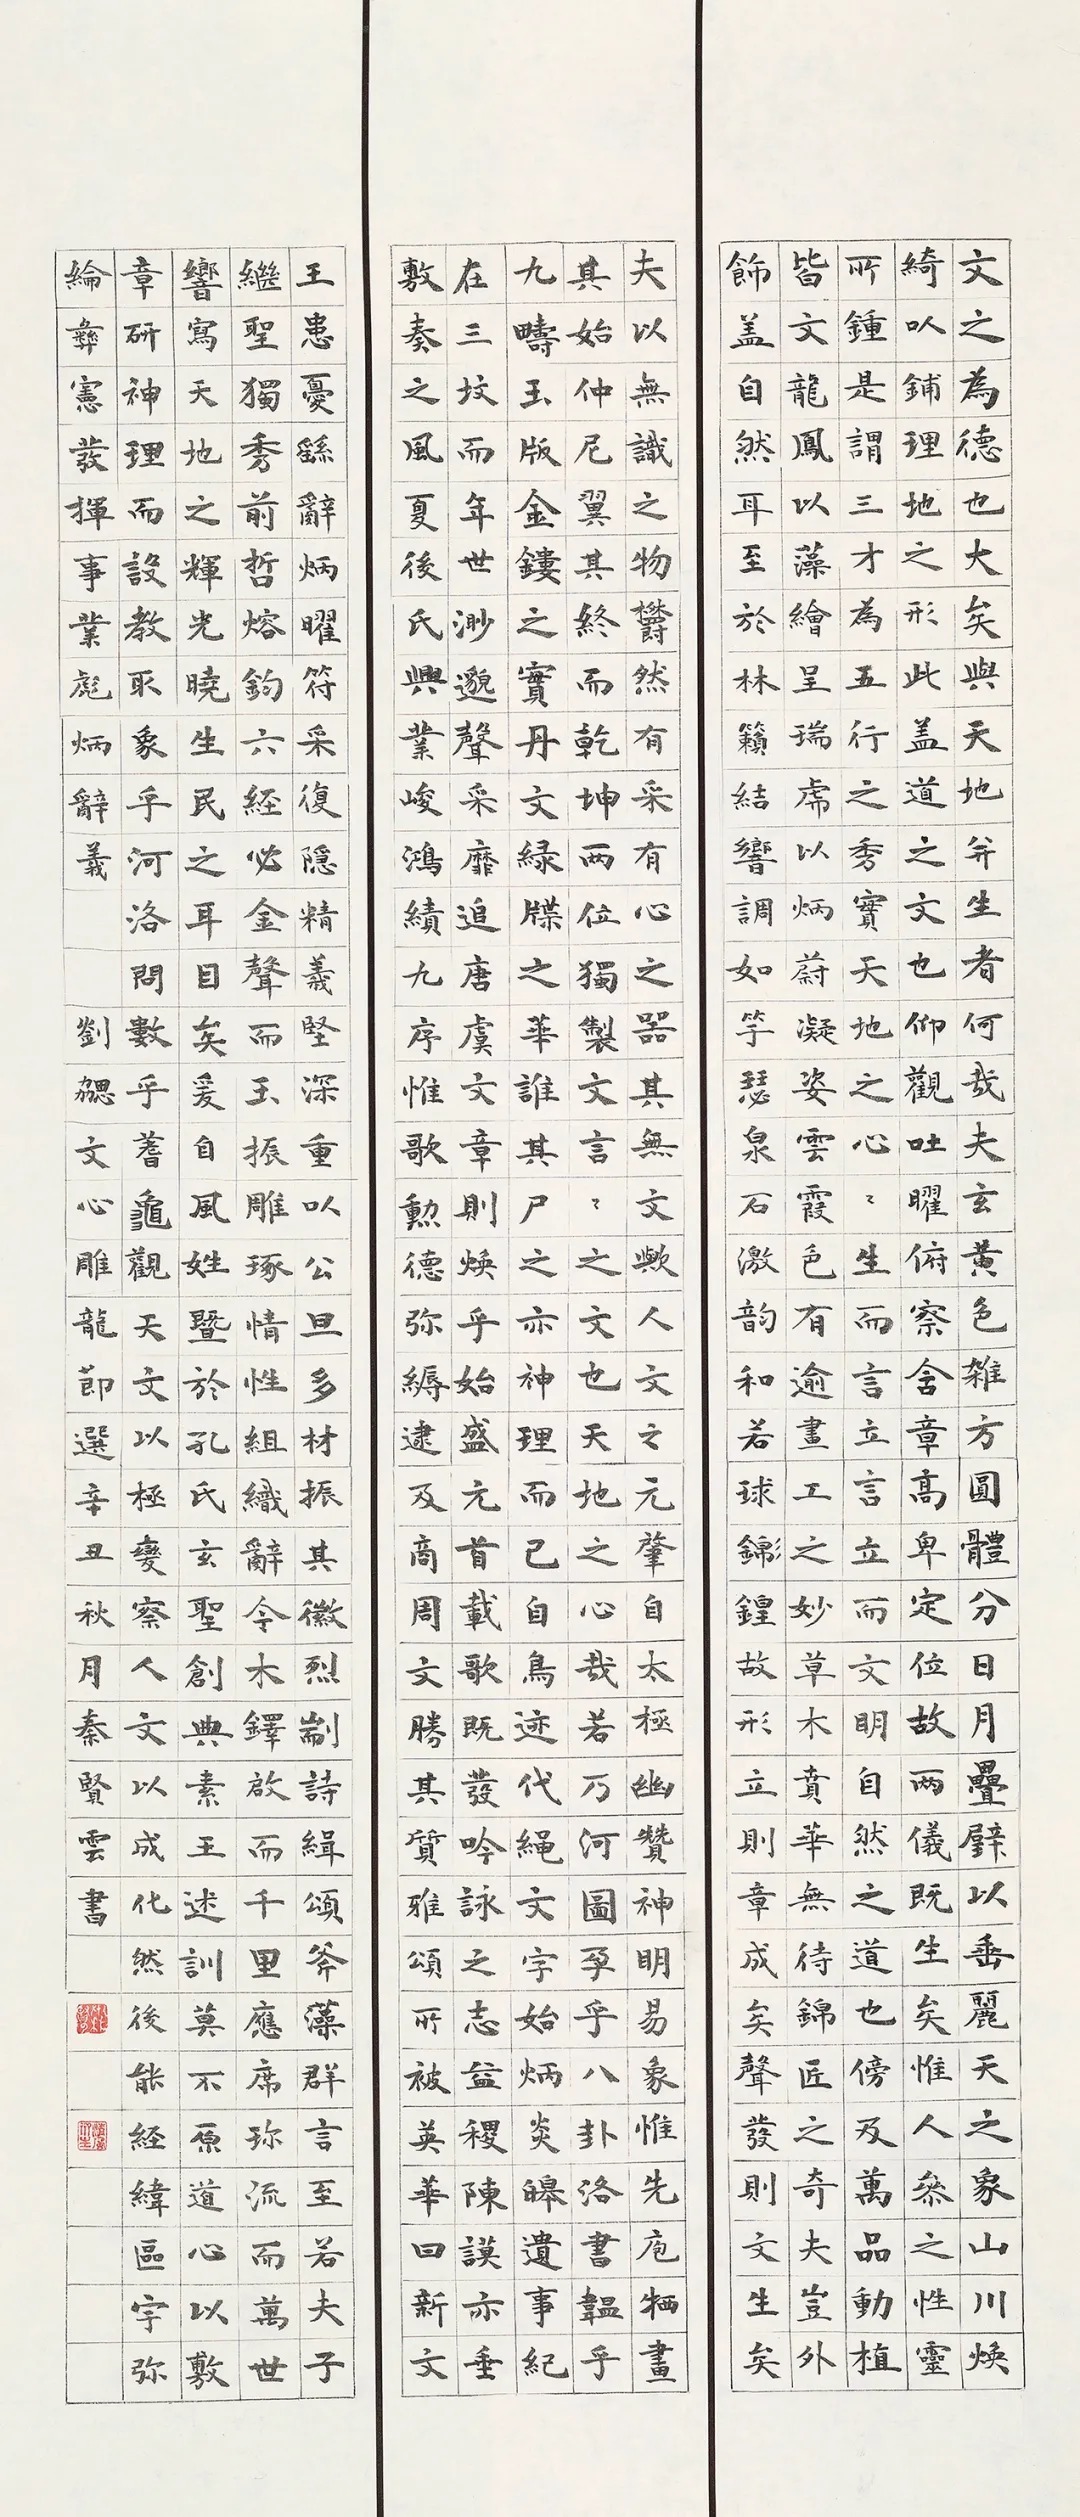 文之為德也大矣與天地并生者何哉夫玄黃色雜方圓體分日月疊璧以垂麗天之象山川煥
綺以鋪理地之形此盖道之文也仰觀吐曜俯察含章高卑定位故兩儀既生矣惟人參之性靈
所鍾是謂三才為五行之秀實天地之心〻生而言立言立而文明自然之道也傍及萬品動植
皆文龍鳳以藻繪呈瑞虎以炳蔚凝姿雲霞色有逾畫工之妙草木賁華無待錦匠之奇夫豈外
飾盖自然耳至於林籟結響調如竽瑟泉石激韵和若球錦鍠故形立則章成矣聲發則文生矣
夫以無識之物欝然有采有心之器其無文歟人文之元肇自太極幽贊神明易象惟先庖牺畫
其始仲尼翼其終而乾坤兩位獨製文言〻之文也天地之心哉若乃河圖孕乎八卦洛書韞乎
九疇玉版金鏤之實丹文緑牒之華誰其尸之亦神理而已自鳥迹代繩文字始炳炎皞遺事紀
在三坟而年世渺邈聲采靡追唐虞文章則煥乎始盛元首載歌既發吟詠之志益稷陳謨亦垂
敷奏之風夏後氏興業峻鴻績九序惟歌勳德弥縟逮及商周文勝其質雅頌所被英華曰新文
王患憂繇辭炳曜符采復隱精義堅深重以公旦多材振其徽烈剬詩緝頌斧藻群言至若夫子
繼聖獨秀前哲熔鈞六経必金聲而玉振雕琢情性組織辭令木鐸啟而千里應席珍流而萬世
響寫天地之輝光曉生民之耳目矣爰自風姓暨於孔氏玄聖創典素王述訓莫不原道心以敷
章研神理而設教取象乎河洛問數乎蓍龜觀天文以極變察人文以成化然後能経緯區宇弥
綸彝憲發揮事業彪炳辭義 劉勰文心雕龍節選辛丑秋月秦賢雲書